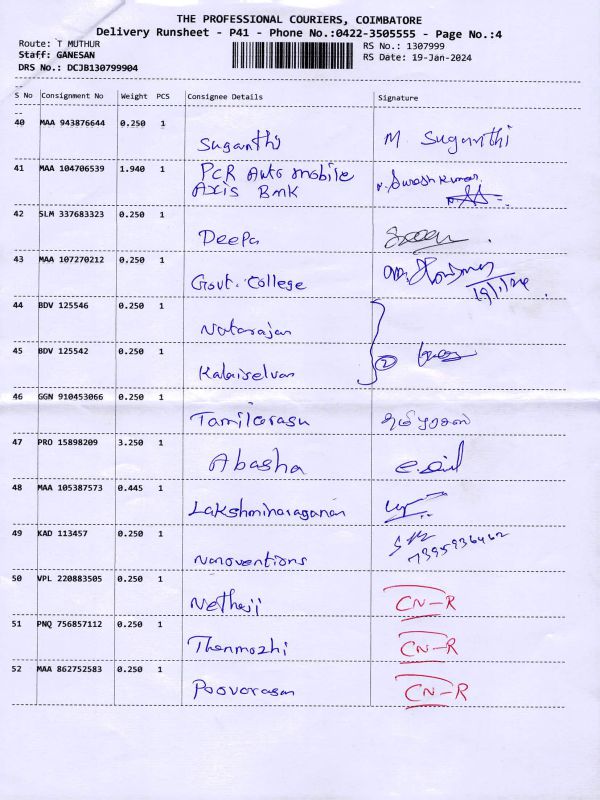 THE PROFESSIONAL COURIERS, COIMBATORE
Delivery Runsheet - P41 - Phone No.:0422-3505555 - Page No.:4
Route: T MUTHUR
RS No.: 1307999
Staff: GANESAN
RS Date: 19-Jan-2024
DRS No.: DCJB130799904
S No Consignment No Weight PCS Consignee Details Signature
40 MAA 943876644 0.250 1
Suganthi M. Suganthi
41 MAA 104706539 1.940 1 PCR Auto mobile
Axis Bank
42 SLM 337683323 0.250 1
Deepa
43 MAA 107270212 0.250 1
Govt. College 19/1/24
44 BDV 125546 0.250 1
Natarajan
45 BDV 125542 0.250 1 2
Kalaiselvan
46 GGN 910453066 0.250 1
Tamilarasu
47 PRO 15898209 3.250 1
Abasha
48 MAA 105387573 0.445 1
Lakshminarayanan
49 KAD 113457 0.250 1
Nanoventions 7395936462
50 VPL 220883505 0.250 1
Nethaji CN-R
51 PNQ 756857112 0.250 1
Thenmozhi CN-R
52 MAA 862752583 0.250 1
Poovarasan CN-R